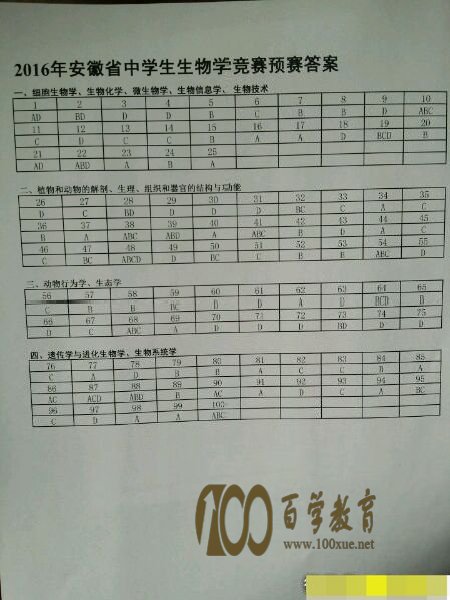 2016年安徽省中学生生物学竞赛预赛答案
一、细胞生物学、生物化学、微生物学、生物信息学、生物技术
1 2 3 4 5 6 7 8 9 10
AD BD D D B C B B D ABC
11 12 13 14 15 16 17 18 19 20
C D C C B A A D BCD B
21 22 23 24 25
AD ABD A B A
二、植物和动物的解剖、生理、组织和器官的结构与功能
26 27 28 29 30 31 32 33 34 35
D C BD D D D BC C A C
36 37 38 39 40 41 42 43 44 45
B A ABC ABD A ABC B D A C
46 47 48 49 50 51 52 53 54 55
C BC ABCD D BC C B B ABC D
三、动物行为学、生态学
56 57 58 59 60 61 62 63 64 65
C B B BC D D A D BCD B
66 67 68 69 70 71 72 73 74 75
D C ABC A D D D BD D D
四、遗传学与进化生物学、生物系统学
76 77 78 79 80 81 82 83 84 85
C A D B B A C C B A
86 87 88 89 90 91 92 93 94 95
AC ACD ABD B AC A D C A BC
96 97 98 99 100
C D A A ABC
100 百学教育
www.100xue.net